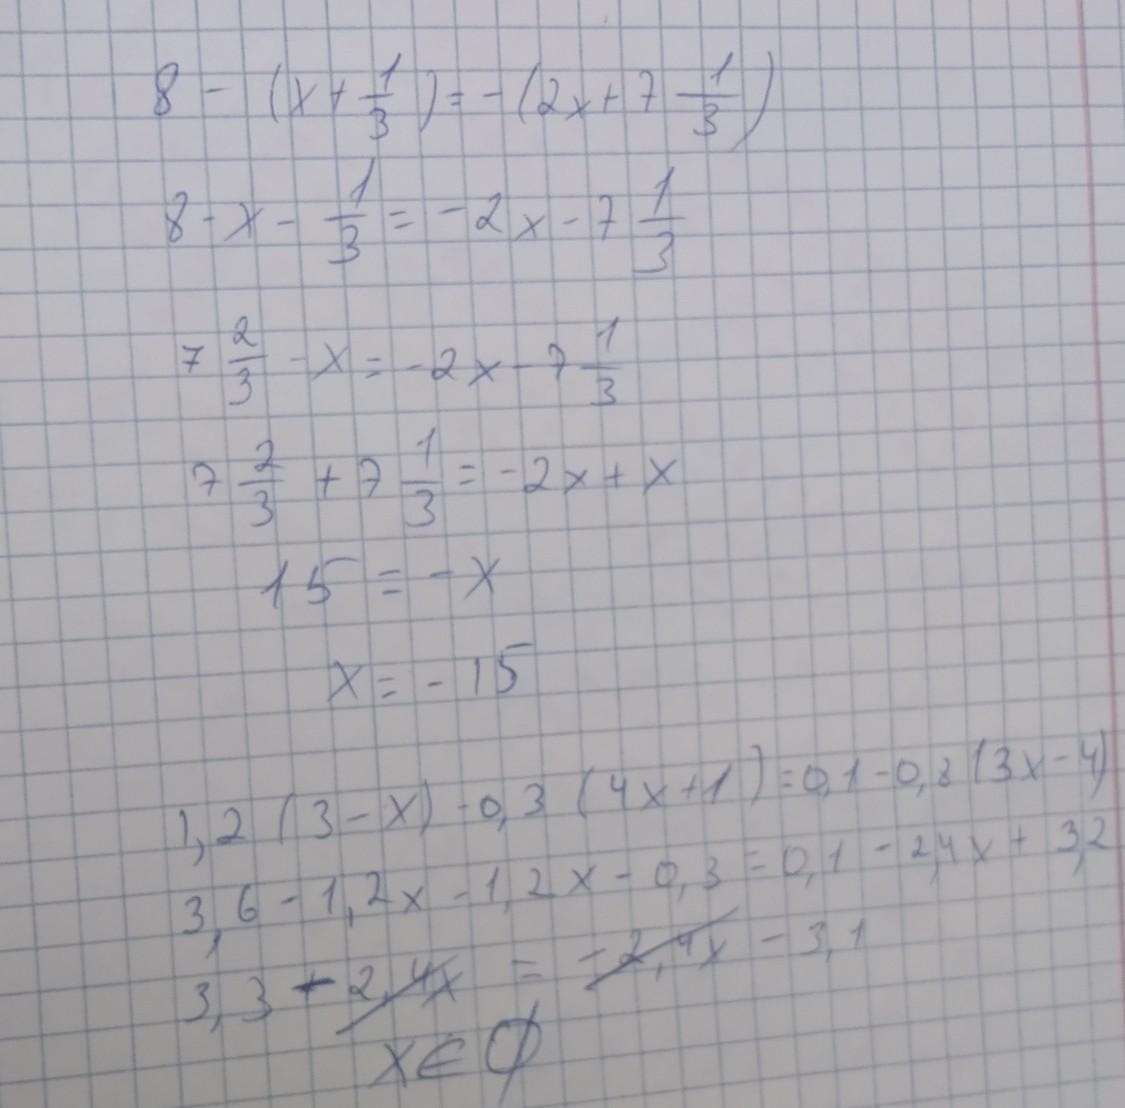 8 - (x + 1/3) = - (2x + 7 1/3)
8 - x - 1/3 = -2x - 7 1/3
7 2/3 - x = -2x - 7 1/3
7 2/3 + 7 1/3 = -2x + x
15 = -x
x = -15
1,2 (3 - x) - 0,3 (4x + 1) = 0,1 - 0,8 (3x - 4)
3,6 - 1,2x - 1,2x - 0,3 = 0,1 - 2,4x + 3,2
3,3 - 2,4x = -2,4x - 3,1
x ∈ ∅